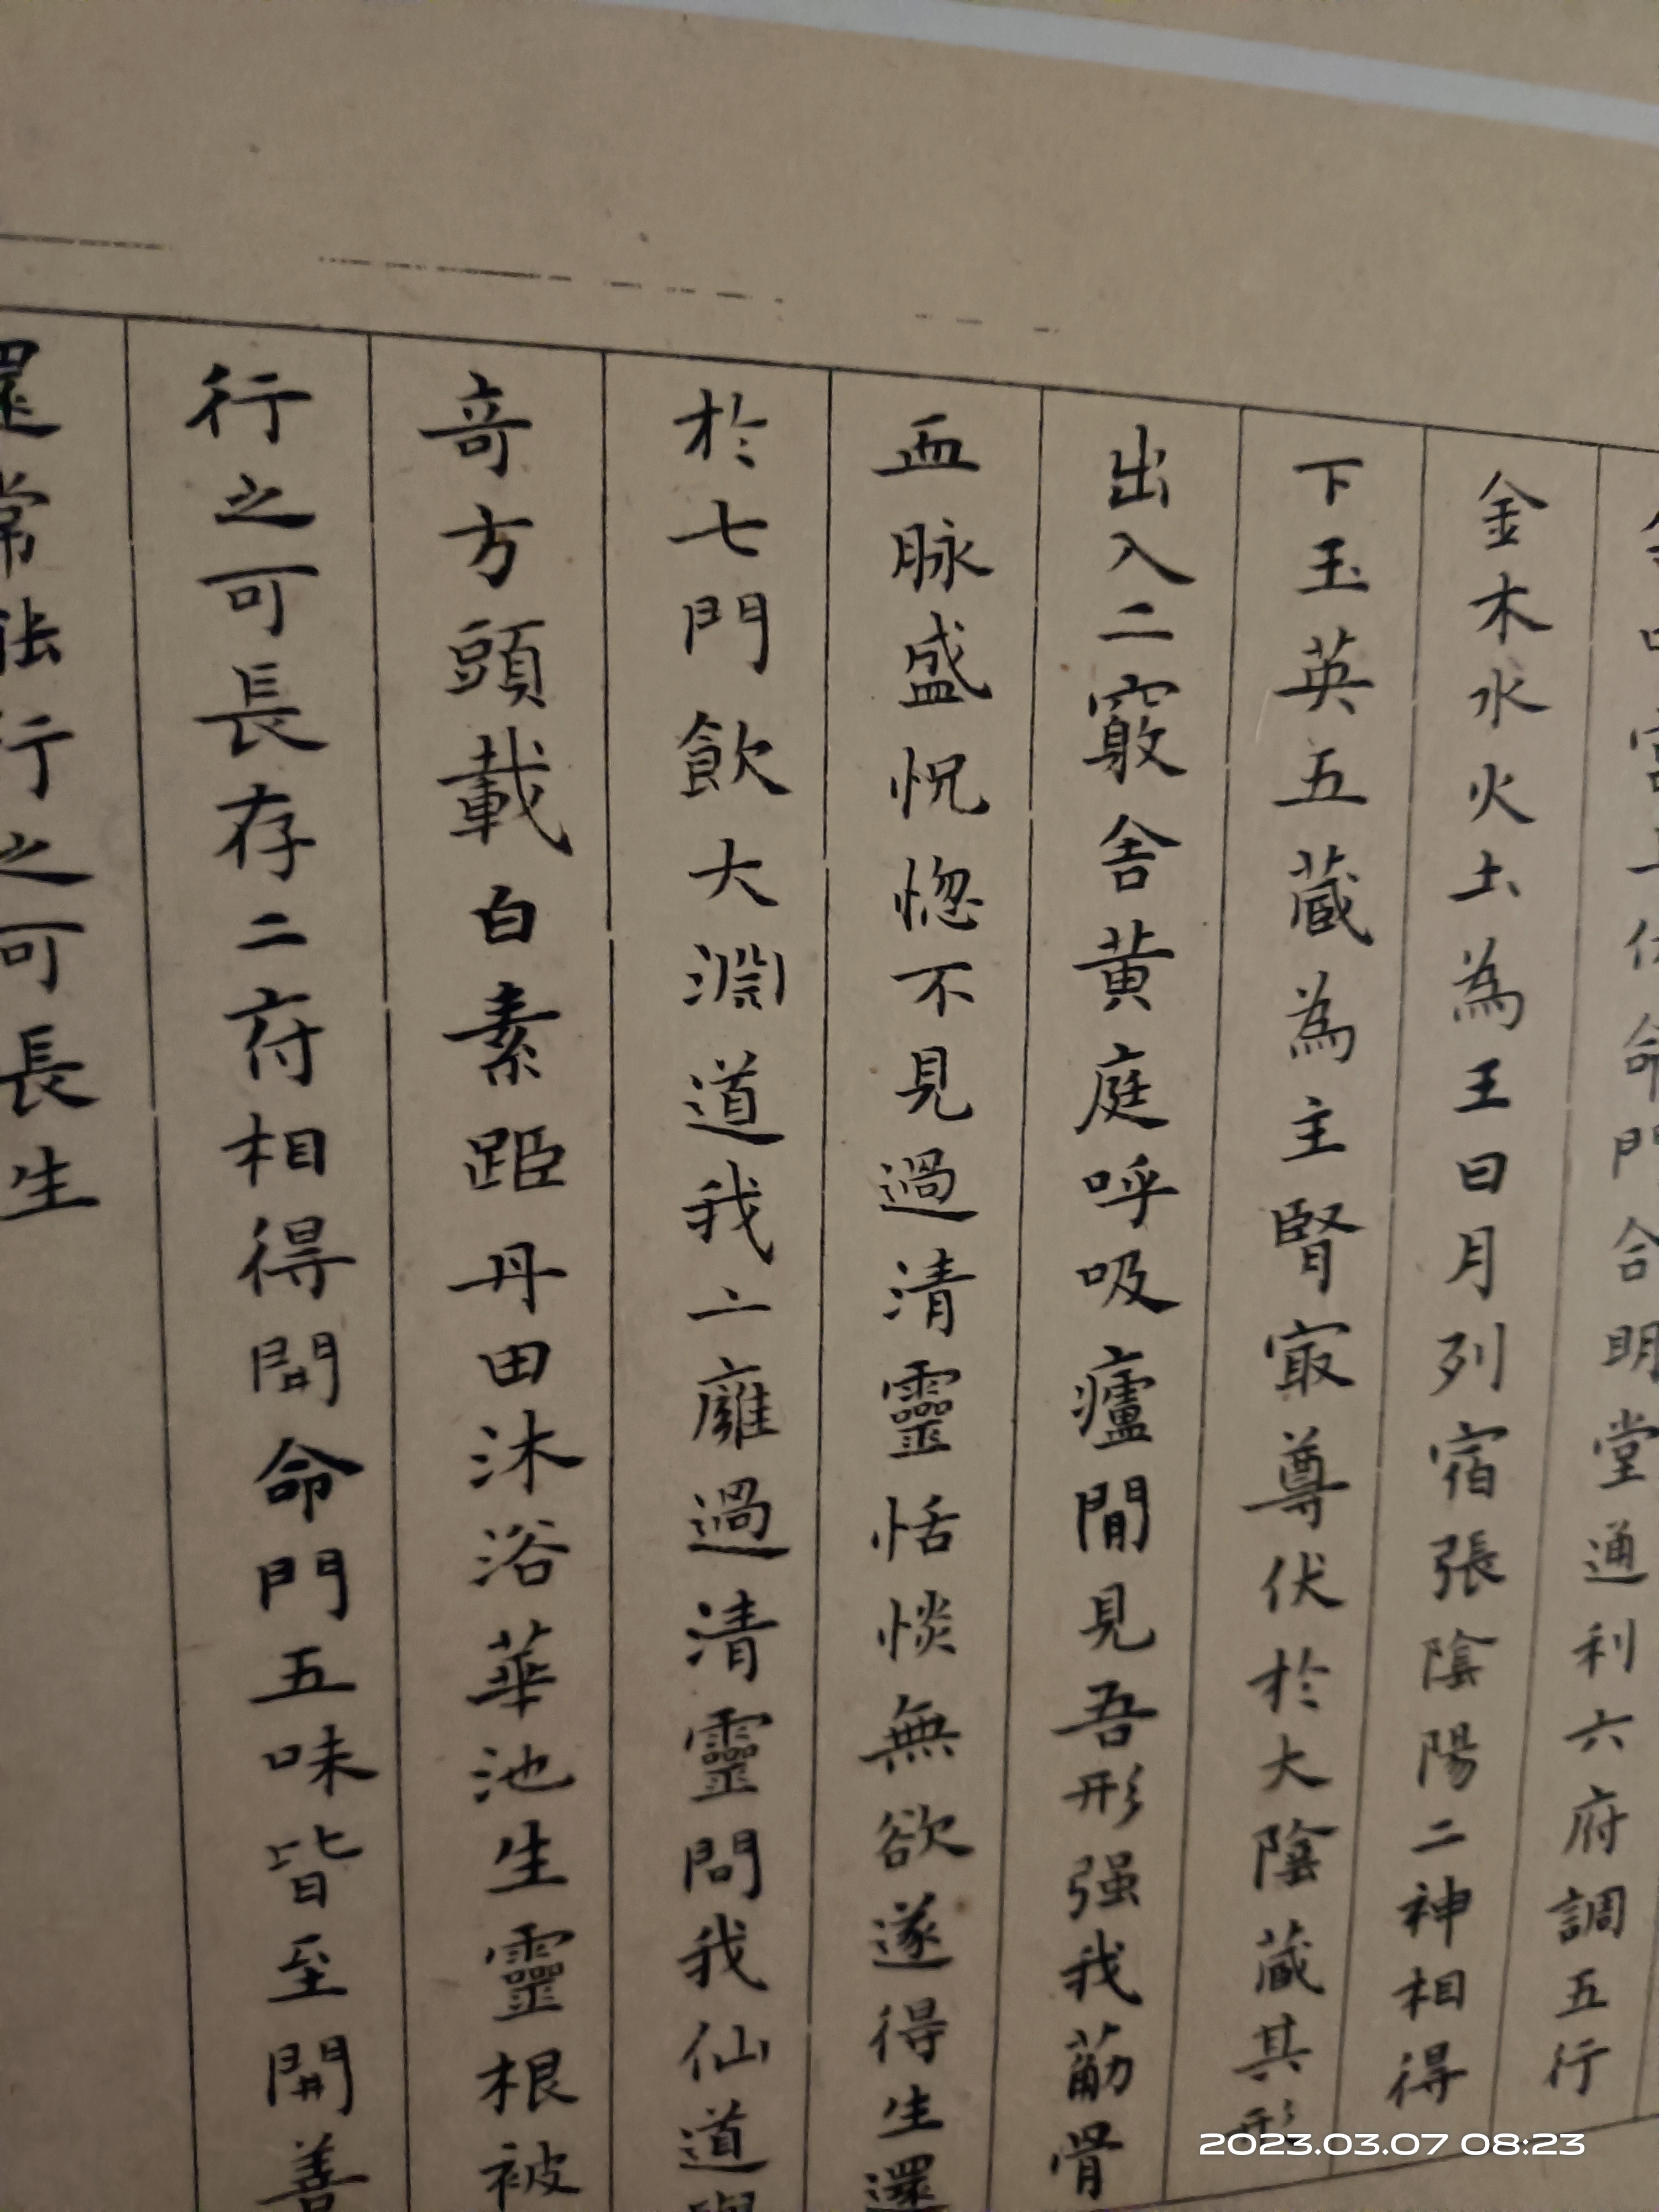 命門合明堂通利六府調五行
金木水火土為王日月列宿張陰陽二神相得
下玉英五藏為主腎㝡尊伏於大陰藏其形
出入二竅舍黃庭呼吸廬間見吾形强我筋骨
血脉盛怳惚不見過清靈恬惔無欲遂得生還
於七門飲大淵道我亠廱過清靈問我仙道與
竒方頭載白素距丹田沐浴華池生靈根被
行之可長存二府相得開命門五味皆至開善
還常能行之可長生
2023.03.07 08:23